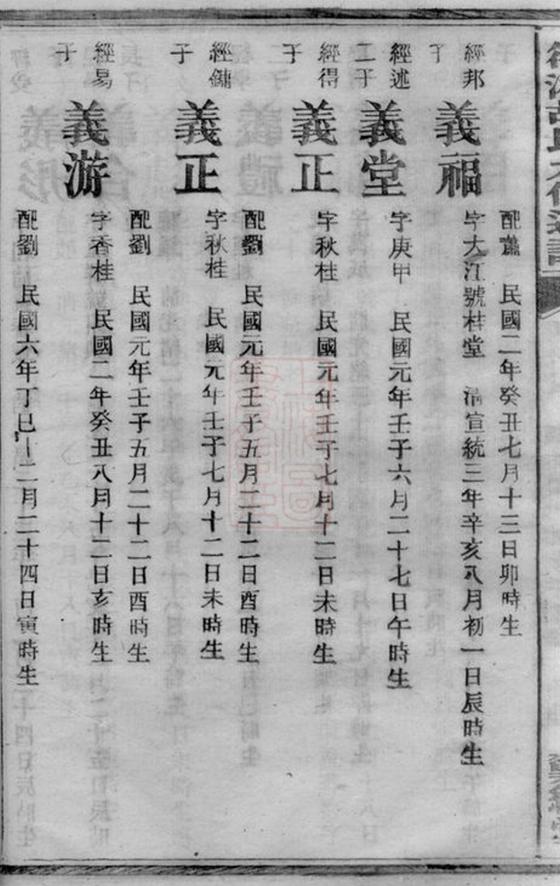 配蕭　民國二年癸丑七月十三日卯時生
經邦子　義福　字大江號桂堂　清宣統三年辛亥八月初一日辰時生
經述二子　義堂　字庚甲　民國元年壬子六月二十七日午時生
經得子　義正　字秋桂　民國元年壬子七月十二日未時生
配劉　民國元年壬子五月二十二日酉時生
經鏞子　義正　字秋桂　民國元年壬子七月十二日未時生
配劉　民國元年壬子五月二十二日酉時生
經易子　義游　字香桂　民國二年癸丑八月十二日亥時生
配劉　民國六年丁巳十二月二十四日寅時生